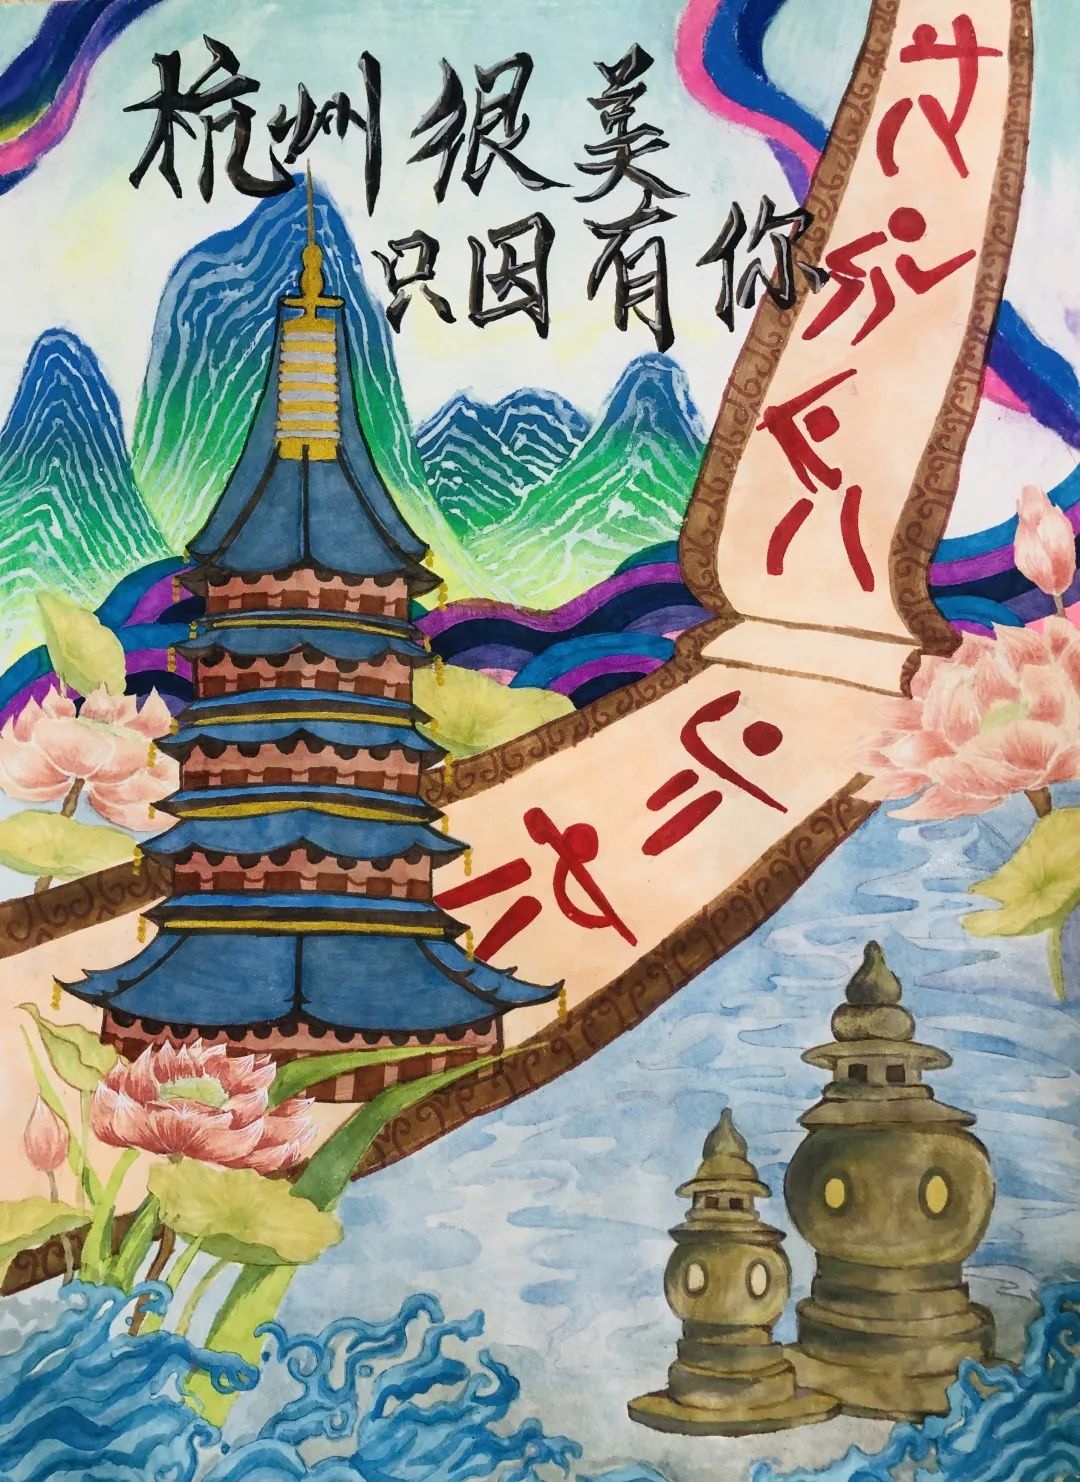 杭州很美
只因有你